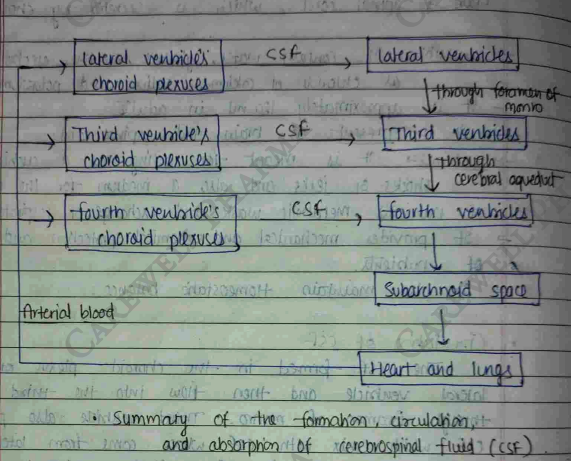 lateral ventricle's CSF lateral ventricles
choroid plexuses
through foramen of
monro
Third ventricle's CSF Third ventricles
choroid plexuses
through
cerebral aqueduct
fourth ventricle's CSF fourth ventricles
choroid plexuses
Subarchnoid space
Arterial blood
Heart and lungs
• Summary of the formation, circulation,
and absorption of cerebrospinal fluid (CSF).